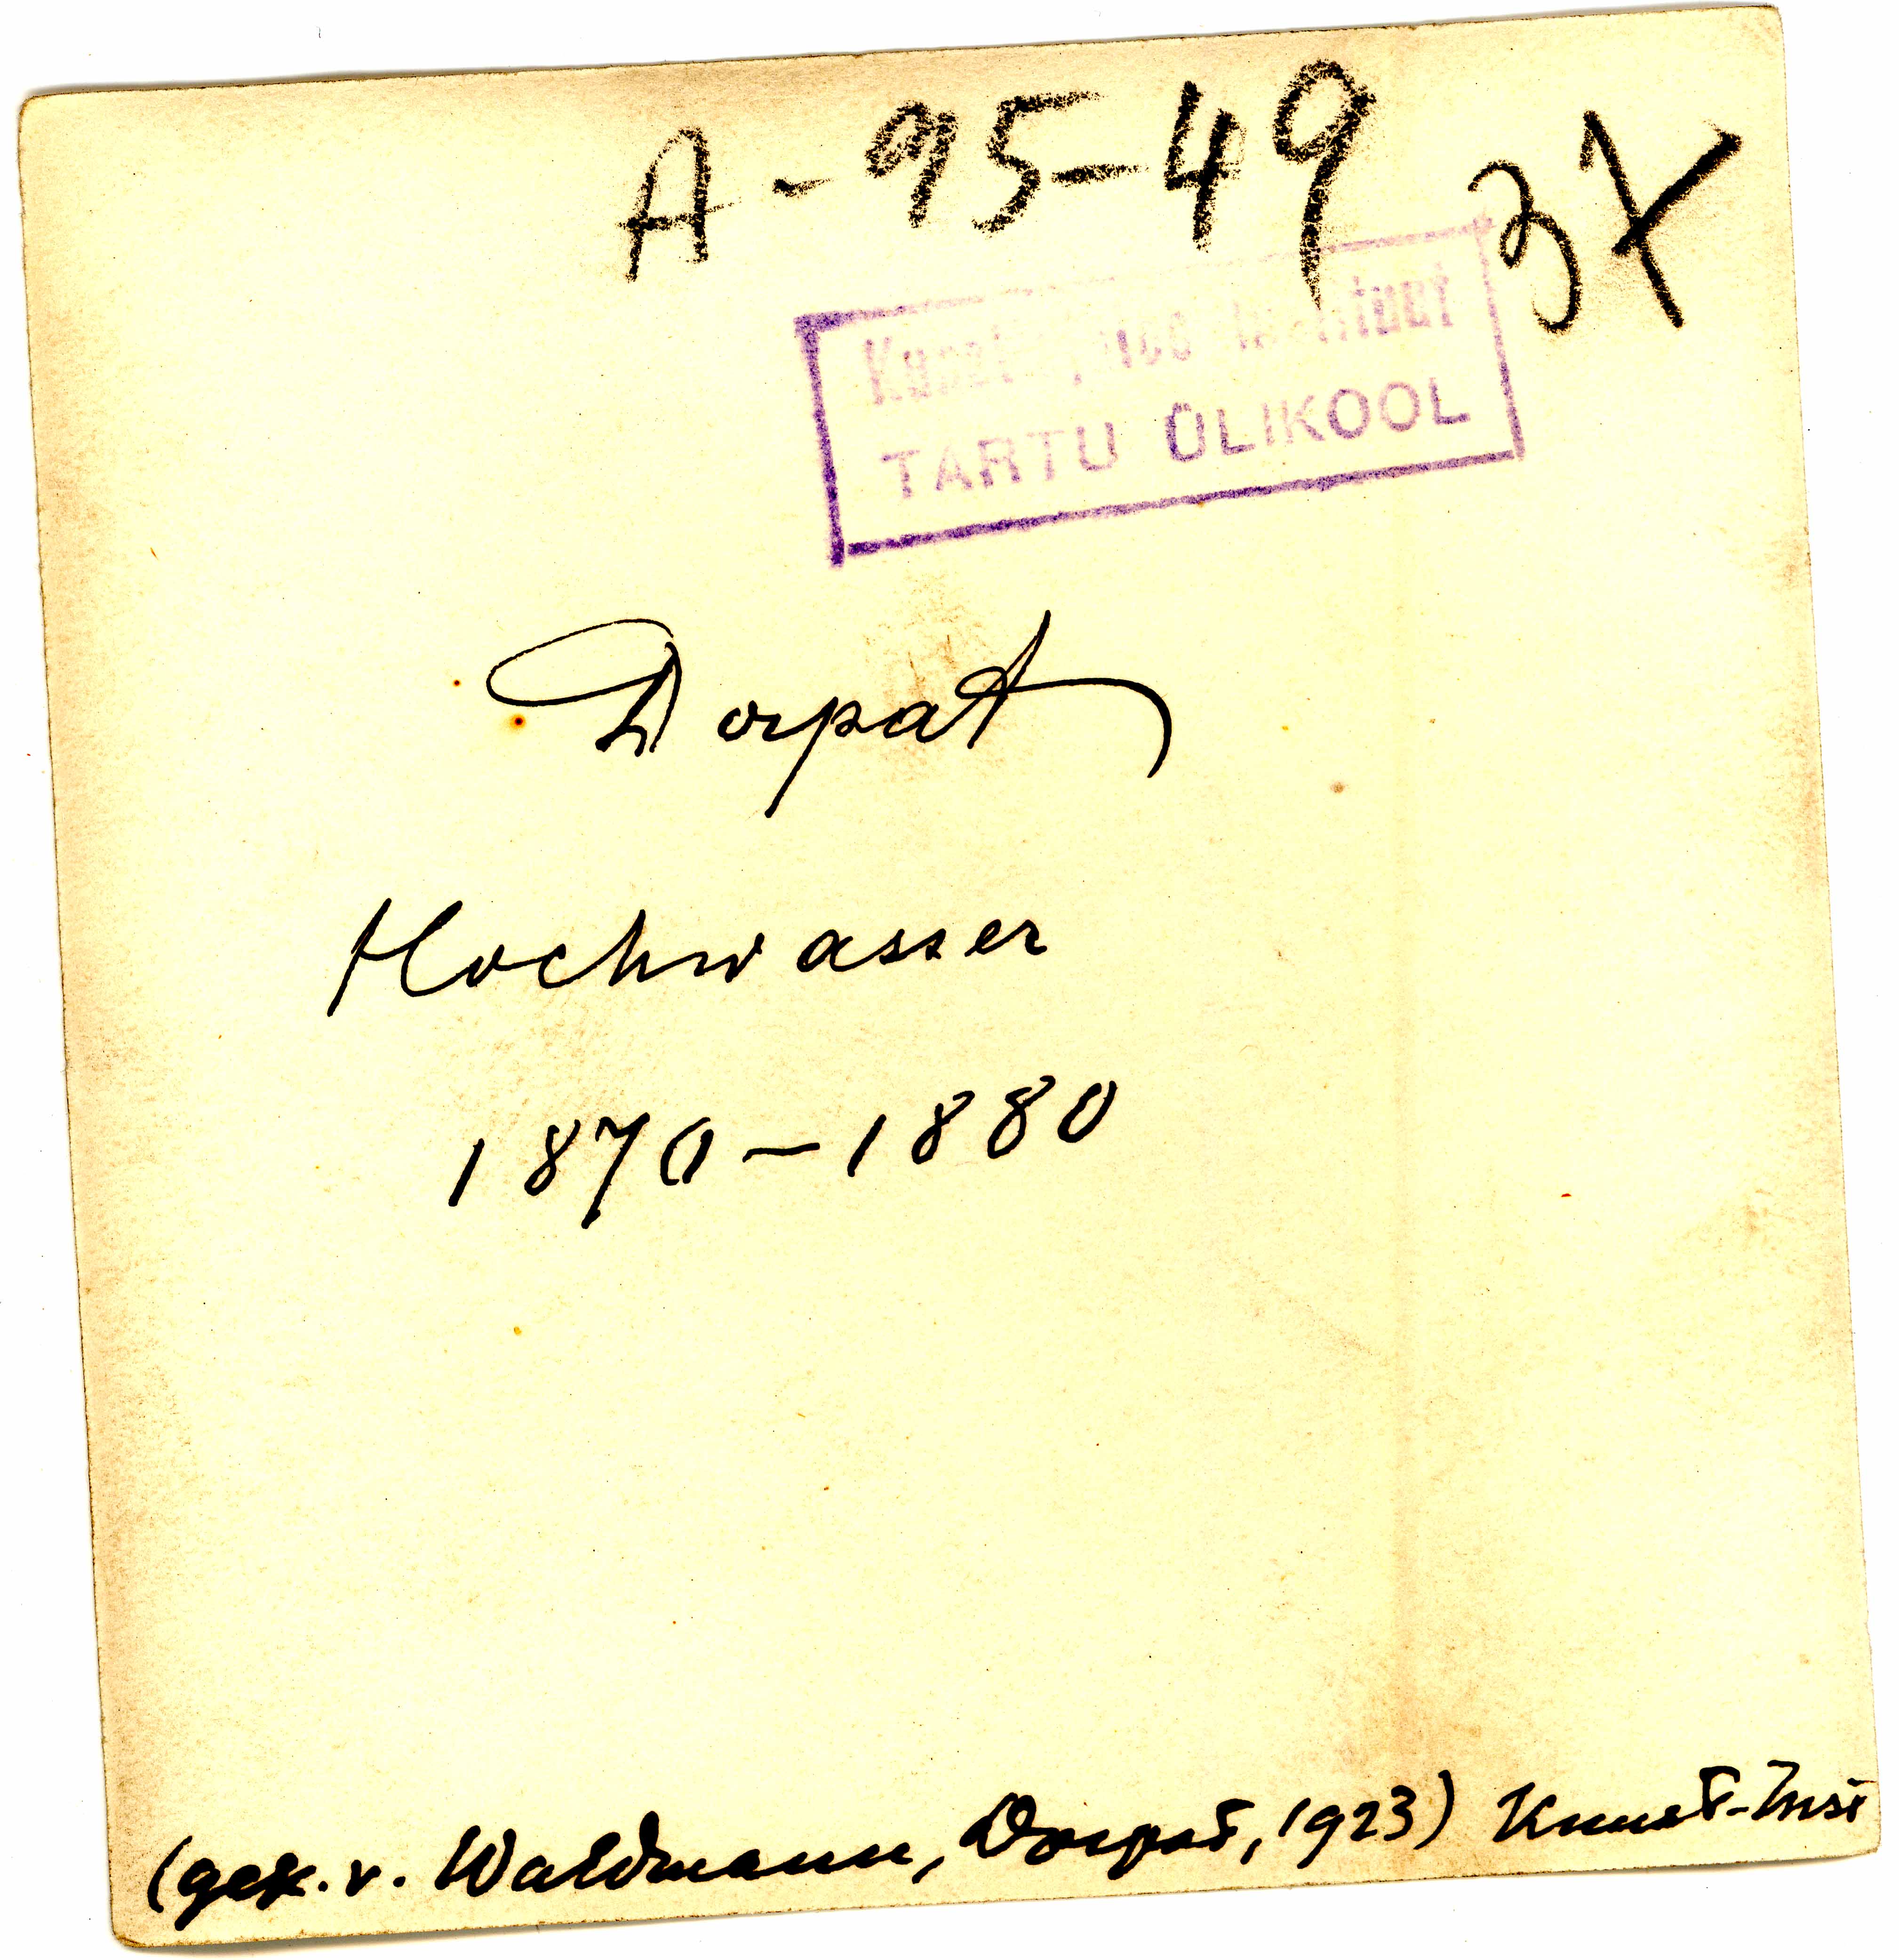 A-95-49
37
TARTU ÜLIKOOL
Dorpat
Hochwasser
1870-1880
(gek. v. Waldmann, Dorpat, 1923) Kunst-Inst